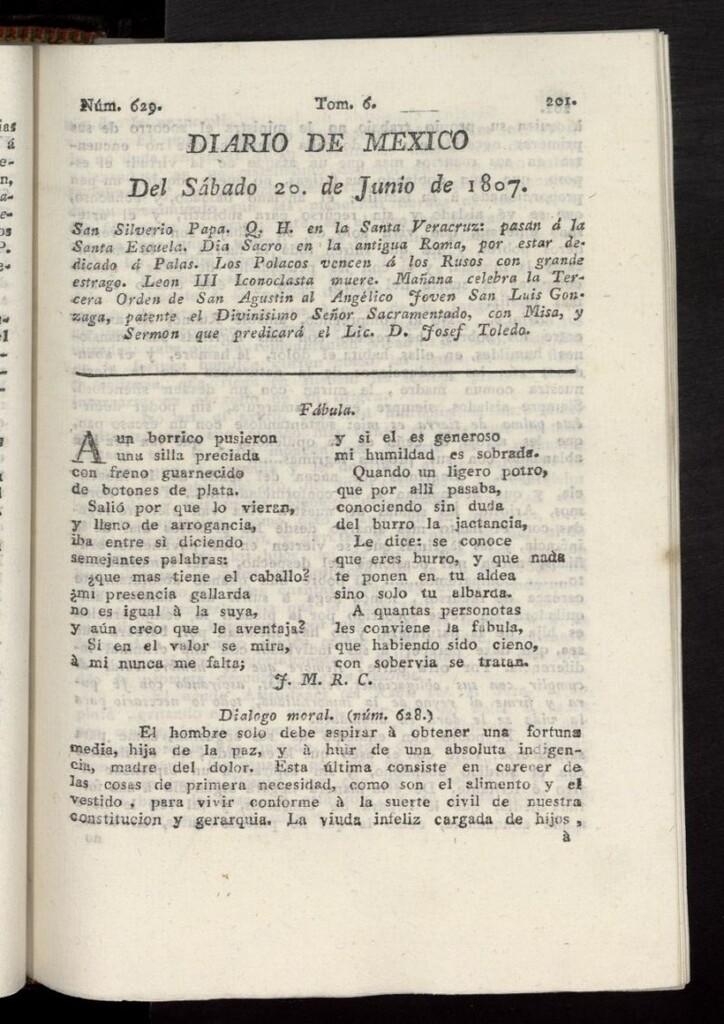 Núm. 629. Tom. 6. 201.
DIARIO DE MEXICO
Del Sábado 20. de Junio de 1807.
San Silverio Papa. Q. H. en la Santa Veracruz: pasan á la
Santa Escuela. Dia Sacro en la antigua Roma, por estar de-
dicado á Palas. Los Polacos vencen á los Rusos con grande
estrago. Leon III Iconoclasta muere. Mañana celebra la Ter-
cera Orden de San Agustin al Angélico Joven San Luis Gon-
zaga, patente el Divinisimo Señor Sacramentado, con Misa, y
Sermon que predicará el Lic. D. Josef Toledo.
Fábula.
A un borrico pusieron
una silla preciada
con freno guarnecido
de botones de plata.
Salió por que lo vieran,
y lleno de arrogancia,
iba entre sì diciendo
semejantes palabras:
¿que mas tiene el caballo?
¿mi presencia gallarda
no es igual à la suya,
y aún creo que le aventaja?
Si en el valor se mira,
à mi nunca me falta;
y si el es generoso
mi humildad es sobrada.
Quando un ligero potro,
que por alli pasaba,
conociendo sin duda
del burro la jactancia,
Le dice: se conoce
que eres burro, y que nada
te ponen en tu aldea
sino solo tu albarda.
A quantas personotas
les conviene la fabula,
que habiendo sido cieno,
con sobervia se tratan.
J. M. R. C.
Dialogo moral. (núm. 628.)
El hombre solo debe aspirar à obtener una fortuna
media, hija de la paz, y à huir de una absoluta indigen-
cia, madre del dolor. Esta última consiste en carecer de
las cosas de primera necesidad, como son el alimento y el
vestido, para vivir conforme à la suerte civil de nuestra
constitucion y gerarquia. La viuda infeliz cargada de hijos,
à